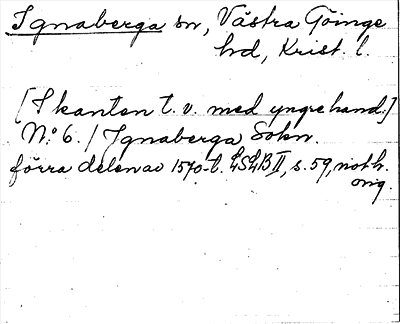 Ignaberga sn, Västra Göinge
hd, Krist. l.
[I kanten t. v. med yngre hand:]
N:o 6. / Ignaberga Sokn.
förra delen av 1570-t. LSLB II, s. 59, not h.
orig.